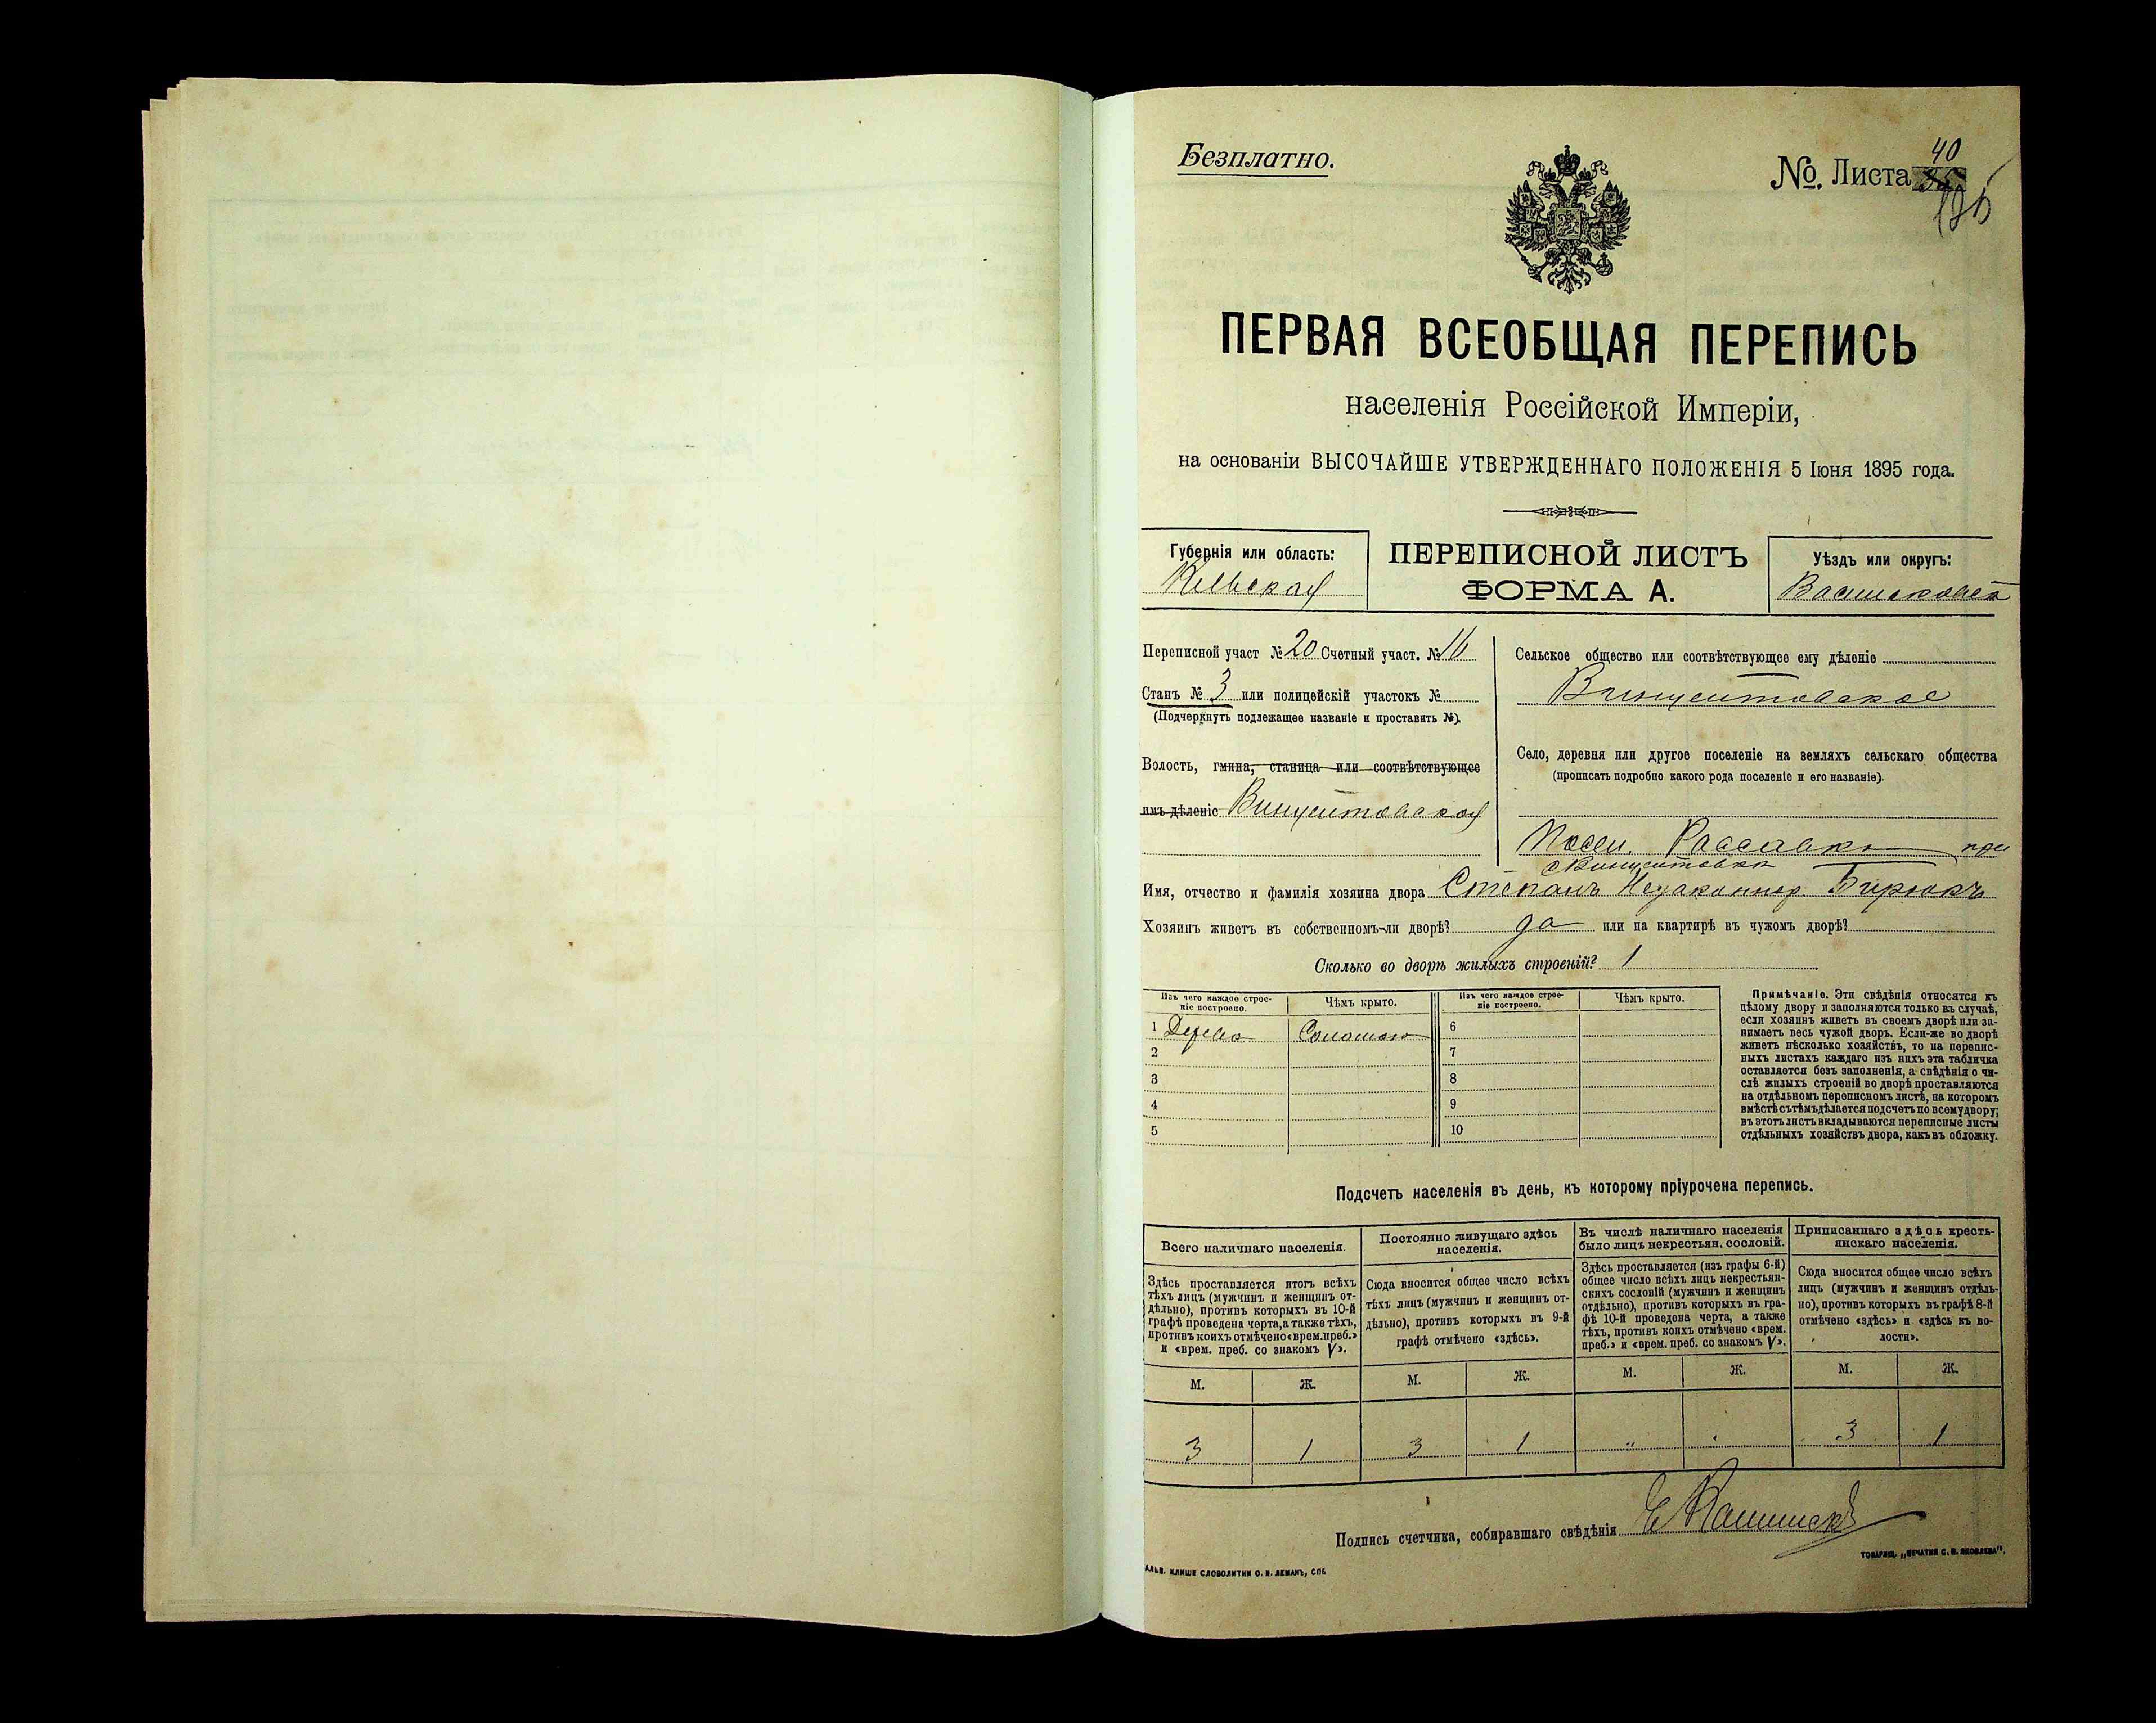 Безплатно.
№. Листа 40
ПЕРВАЯ ВСЕОБЩАЯ ПЕРЕПИСЬ
населенія Россійской Имперіи,
на основаніи ВЫСОЧАЙШЕ УТВЕРЖДЕННАГО ПОЛОЖЕНІЯ 5 Іюня 1895 года.
Губернія или область:
Кіевская
ПЕРЕПИСНОЙ ЛИСТЪ
ФОРМА А.
Уѣздъ или округъ:
Переписной участ № 20 Счетный участ. № 16
Станъ № 3 или полицейскій участокъ №
(Подчеркнуть подлежащее названіе и проставить №).
Волость, гмина, станица или соотвѣтствующее
имъ дѣленіе Винцентовская
Сельское общество или соотвѣтствующее ему дѣленіе
Винцентовское
Село, деревня или другое поселеніе на земляхъ сельскаго общества
(прописать подробно какого рода поселеніе и его названіе).
Рассавка при
с Винцентовка
Имя, отчество и фамилія хозяина двора Степанъ Бирюкъ
Хозяинъ живетъ въ собственномъ-ли дворѣ? да или на квартирѣ въ чужомъ дворѣ?
Сколько во дворѣ жилыхъ строеній? 1
Изъ чего каждое строе-
ніе построено.
Чѣмъ крыто.
Изъ чего каждое строе-
ніе построено.
Чѣмъ крыто.
1 Дерево Соломою 6
2 7
3 8
4 9
5 10
Примѣчаніе. Эти свѣдѣнія относятся къ
цѣлому двору и заполняются только въ случаѣ,
если хозяинъ живетъ въ своемъ дворѣ или за-
нимаетъ весь чужой дворъ. Если-же во дворѣ
живетъ нѣсколько хозяйствъ, то на перепис-
ныхъ листахъ каждаго изъ нихъ эта табличка
оставляется безъ заполненія, а свѣдѣнія о чи-
слѣ жилыхъ строеній во дворѣ проставляются
на отдѣльномъ переписномъ листѣ, на которомъ
вмѣстѣ съ тѣмъ дѣлается подсчетъ по всему двору;
въ этотъ листъ вкладываются переписные листы
отдѣльныхъ хозяйствъ двора, какъ въ обложку.
Подсчетъ населенія въ день, къ которому пріурочена перепись.
Всего наличнаго населенія.
Здѣсь проставляется итогъ всѣхъ
тѣхъ лицъ (мужчинъ и женщинъ от-
дѣльно), противъ которыхъ въ 10-й
графѣ проведена черта, а также тѣхъ,
противъ коихъ отмѣчено «врем. преб.»
и «врем. преб. со знакомъ V».
Постоянно живущаго здѣсь
населенія.
Сюда вносится общее число всѣхъ
тѣхъ лицъ (мужчинъ и женщинъ от-
дѣльно), противъ которыхъ въ 9-й
графѣ отмѣчено «здѣсь».
Въ числѣ наличнаго населенія
было лицъ некрестьян. сословій.
Здѣсь проставляется (изъ графы 6-й)
общее число всѣхъ лицъ некрестьян-
скихъ сословій (мужчинъ и женщинъ
отдѣльно), противъ которыхъ въ гра-
фѣ 10-й проведена черта, а также
тѣхъ, противъ коихъ отмѣчено «врем.
преб.» и «врем. преб. со знакомъ V».
Приписаннаго здѣсь кресть-
янскаго населенія.
Сюда вносится общее число всѣхъ
лицъ (мужчинъ и женщинъ отдѣль-
но), противъ которыхъ въ графѣ 8-й
отмѣчено «здѣсь» и «здѣсь къ во-
лости».
М. Ж. М. Ж. М. Ж. М. Ж.
3 1 3 1 „ „ 3 1
Подпись счетчика, собиравшаго свѣдѣнія
АЛЬВ. КЛИШЕ СЛОВОЛИТНИ О. И. ЛЕМАНЪ, СПБ.
ТОВАРИЩ. „ПЕЧАТНЯ С. П. ЯКОВЛЕВА".